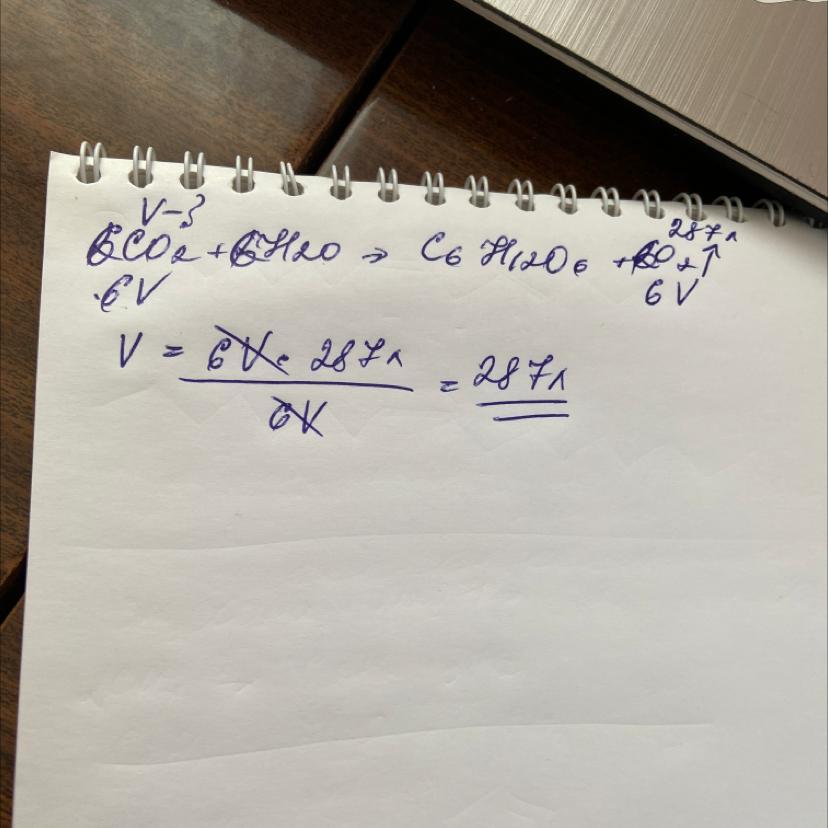 V-? 287л
6CO2 + 6H2O → C6H12O6 + 6O2↑
6V 6V
V = 6V · 287л / 6V = 287л